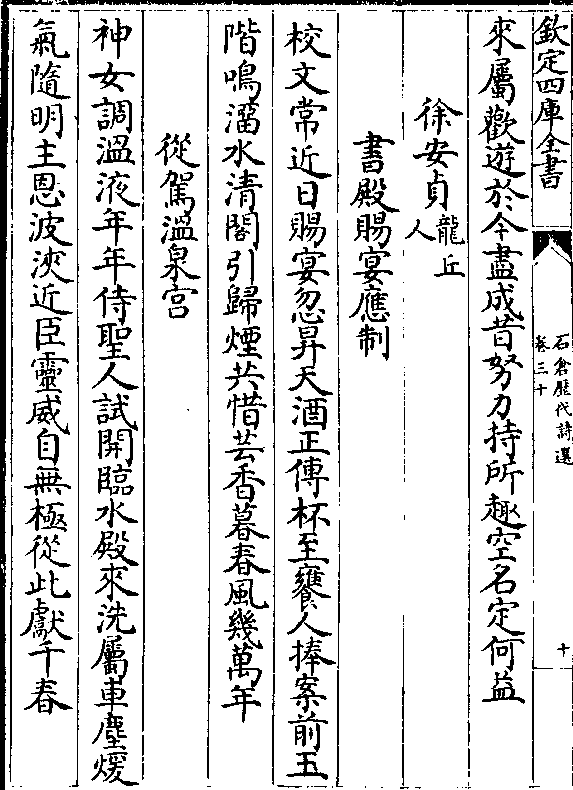 欽定四庫全書
石倉歷代詩選
卷三十
十
來屬歡遊於今盡成昔努力持所趣空名定何益
徐安貞龍丘人
書殿賜宴應制
校文常近日賜宴忽昇天酒正傳杯至饔人捧案前玉
階鳴溜水清閣引歸煙共惜芸香暮春風幾萬年
從駕溫泉宫
神女調温液年年侍聖人試開臨水殿來洗屬車塵煖
氣隨明主恩波浹近臣靈威自無極從此獻千春